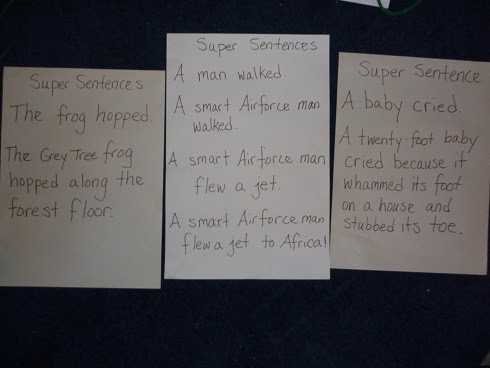 Super Sentences
The frog hopped.
The Grey Tree frog
hopped along the
forest floor.
Super Sentences
A man walked.
A smart Airforce man
walked.
A smart Airforce man
flew a jet.
A smart Airforce man
flew a jet to Africa!
Super Sentence
A baby cried.
A twenty-foot baby
cried because it
whammed its foot
on a house and
stubbed its toe.